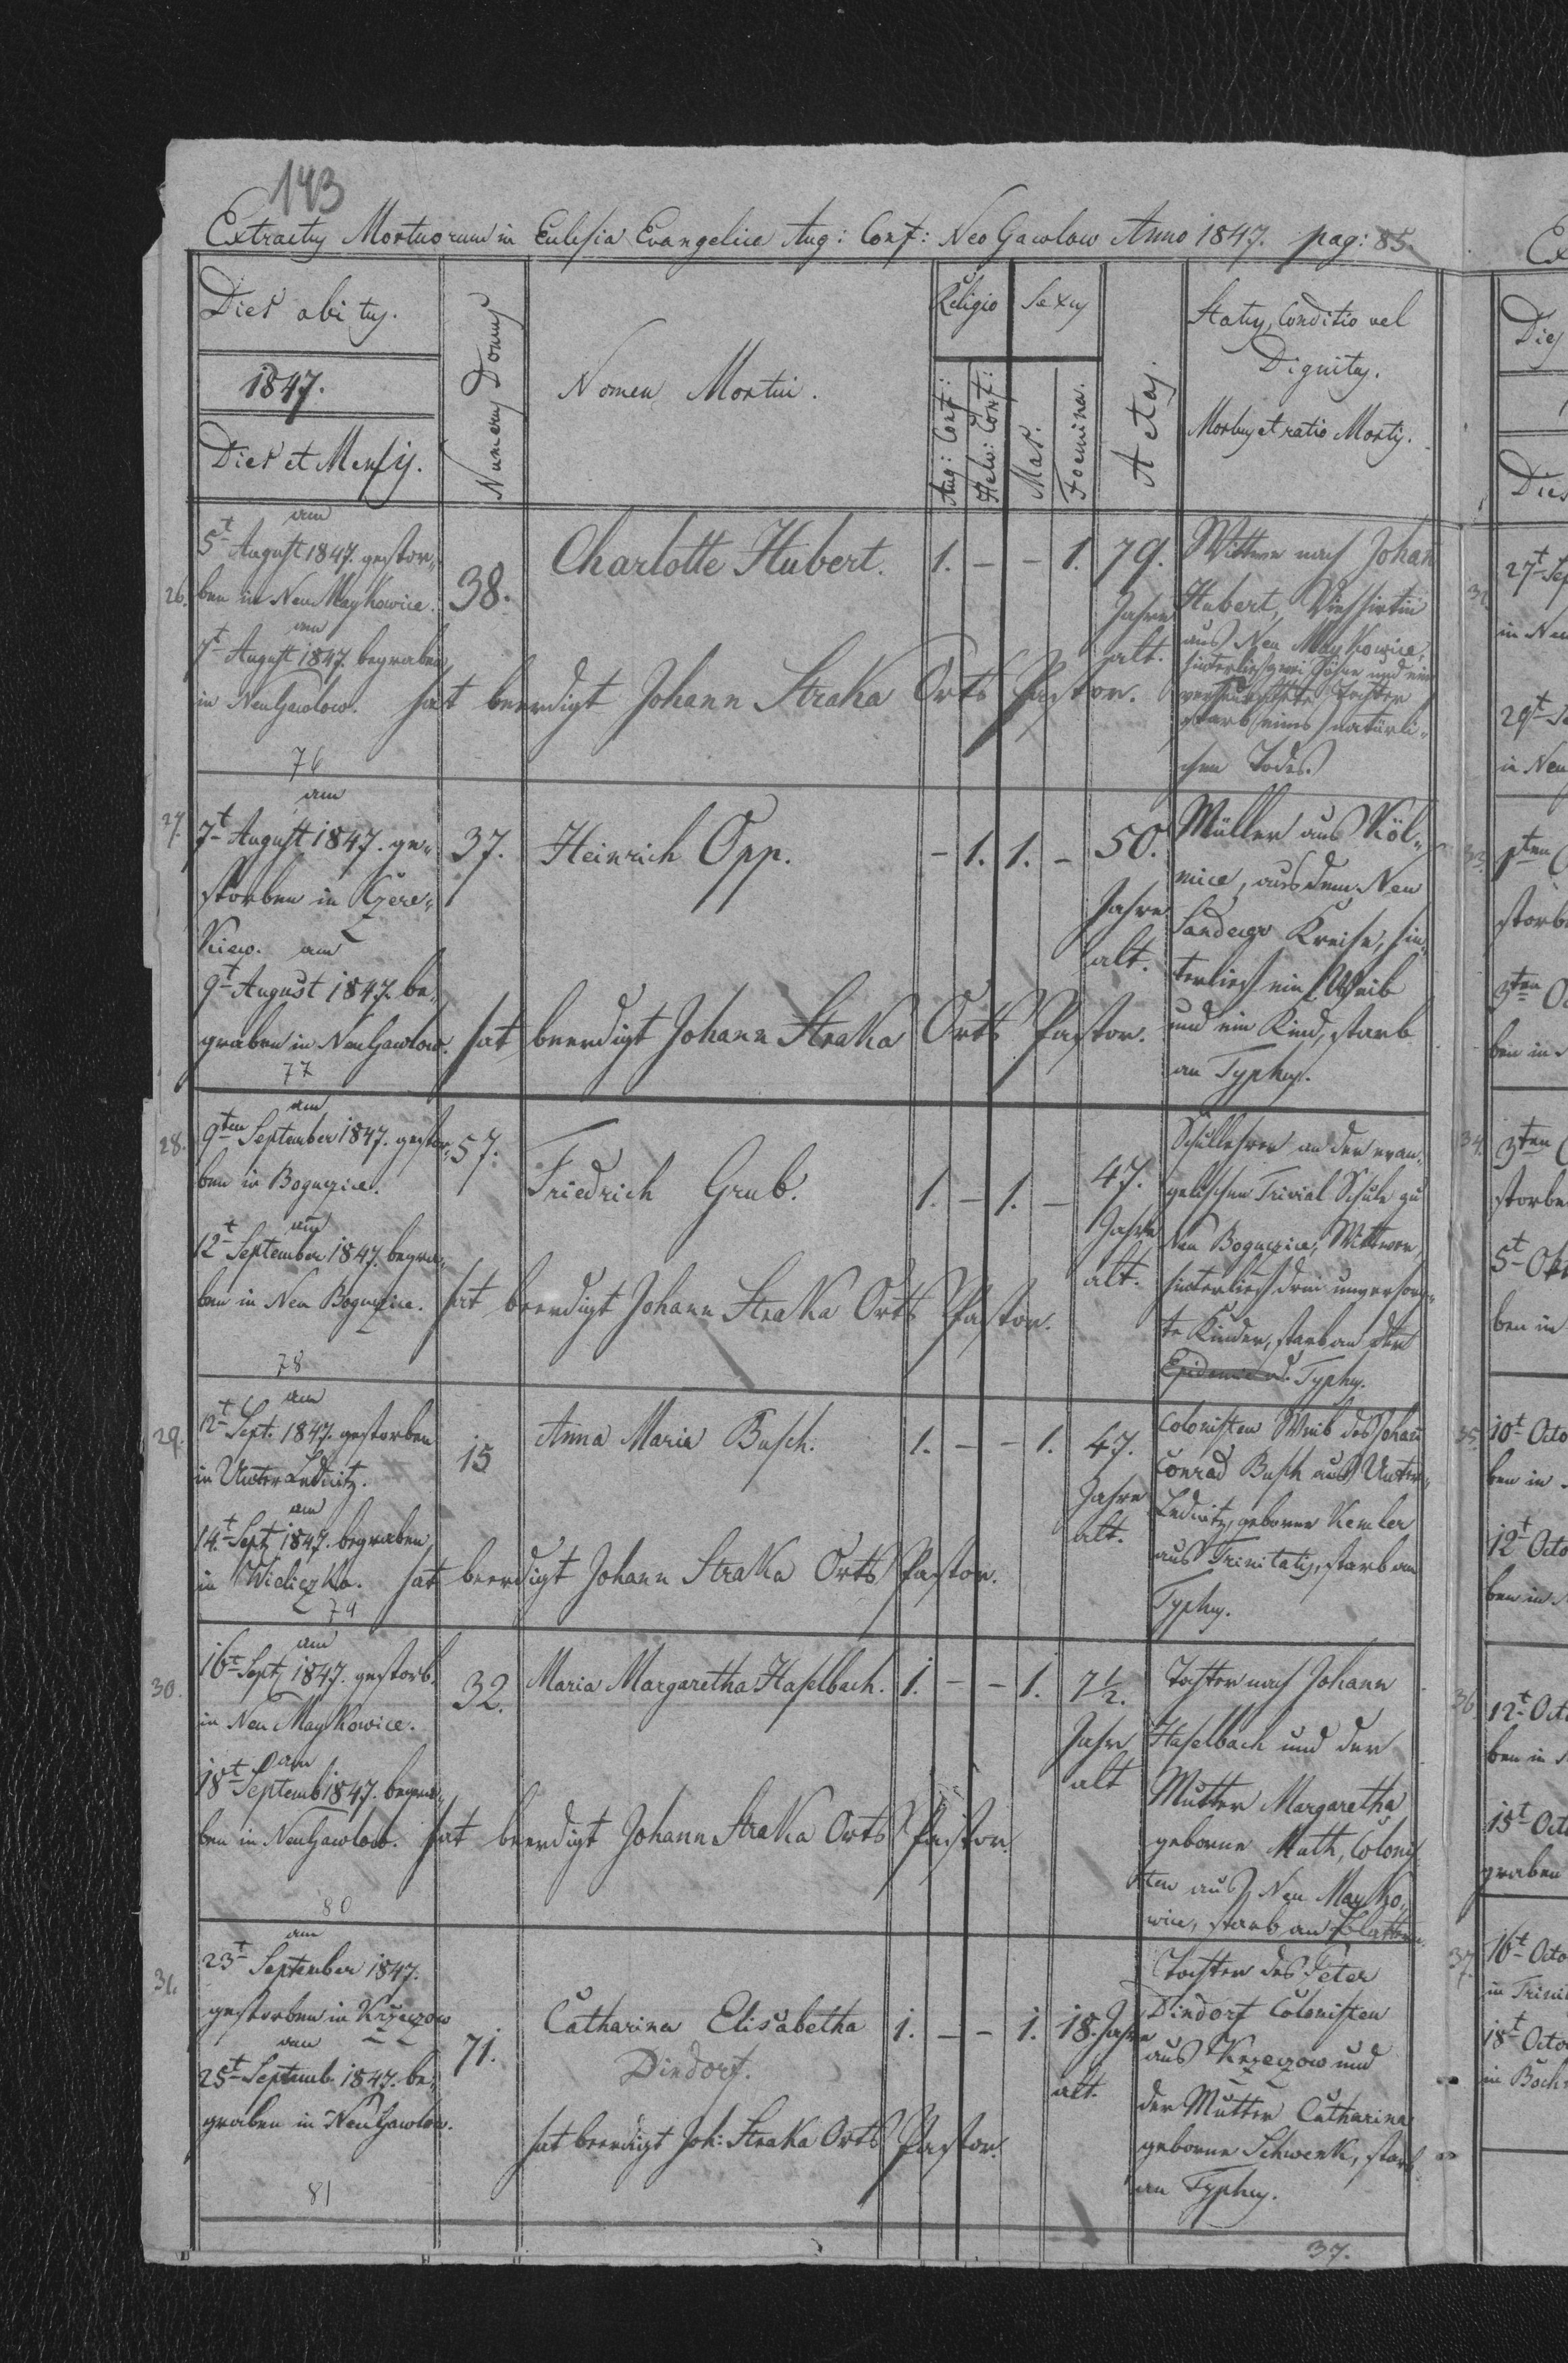 143
Extractus Mortuorum in Eclesia Evangelica Aug: Conf: Neo Gawlow Anno 1847. pag: 85.
Dies obitus.
1847.
Dies et Mensis.
Numerus Domus
Nomen Mortui.
Religio
Aug: Conf:
Helv: Conf:
Sexus
Mas.
Foemina.
Aetas.
Status, Conditio vel
Dignitas.
Morbus et ratio Mortis.
26.
am
5t August 1847. gestor„
ben in Neu Maykowice.
am
7t August 1847. begraben
in NeuGawlow.
76
38.
Charlotte Hubert.
1. – – 1.
79.
Jahre
alt.
hat beerdigt Johann Straka Orts Pastor.
Wittwe nach Johan
Hubert,
aus Neu Maykowice,
hinterließ zwei Söhne und eine
verheirathete Tochter
starb eines natürli„
chen Todes.
27.
am
7t August 1847. ge„
storben in Kzere„
kiew. am
9t August 1847. be„
graben in NeuGawlow.
77
37.
Heinrich Opp.
– 1. 1. –
50.
Jahre
alt.
hat beerdigt Johann Straka Orts Pastor.
Müller aus Köl„
nice, aus dem Neu
Sandecer Kreise, hin„
terließ ein Weib
und ein Kind, starb
an Typhus.
28.
am
9ten September 1847. gestor„
ben in Boguczice.
am
12t September 1847. begra„
ben in Neu Boguczice.
78
57.
Friedrich Grub.
1. – 1. –
47.
Jahre
alt.
hat beerdigt Johann Straka Orts Pastor.
Schullehrer an der evan„
gelischen Trivial Schule zu
Neu Boguczice, Wittwer,
hinterließ drei unversorg„
te Kinder, starb an der
Epidemie d. Typhus.
29.
am
12t Sept. 1847. gestorben
in Unter Lednitz.
am
14.t Sept 1847. begraben
in Wieliczka.
79
15
Anna Maria Busch.
1. – – 1.
47.
Jahre
alt.
hat beerdigt Johann Straka Orts Pastor.
Colonisten Weib des Johan
Conrad Busch aus Unter„
Lednitz, geborne Kemler
aus Trinitatis, starb an
Typhus.
30.
am
16t Sept 1847. gestorb.
in Neu Maykowice.
am
18t Septemb 1847. begra„
ben in NeuGawlow.
80
32.
Maria Margaretha Haselbach.
1. – – 1.
7½.
Jahr
alt
hat beerdigt Johann Straka Orts Pastor.
Tochter nach Johann
Haselbach und der
Mutter Margaretha
geborne Math, Colonis
ten aus Neu Mayko„
wice, starb an Blattern.
31.
am
23t September 1847.
gestorben in Krzeczow
am
25t Septemb. 1847. be„
graben in NeuGawlow.
81
71.
Catharina Elisabetha
Dindorf.
1. – – 1.
18. Jahre
alt.
hat beerdigt Joh: Straka Orts Pastor.
Tochter des Peter
Dindorf Colonisten
aus Krzeczow und
der Mutter Catharina
geborne Schwenk, starb
an Typhus.
37.